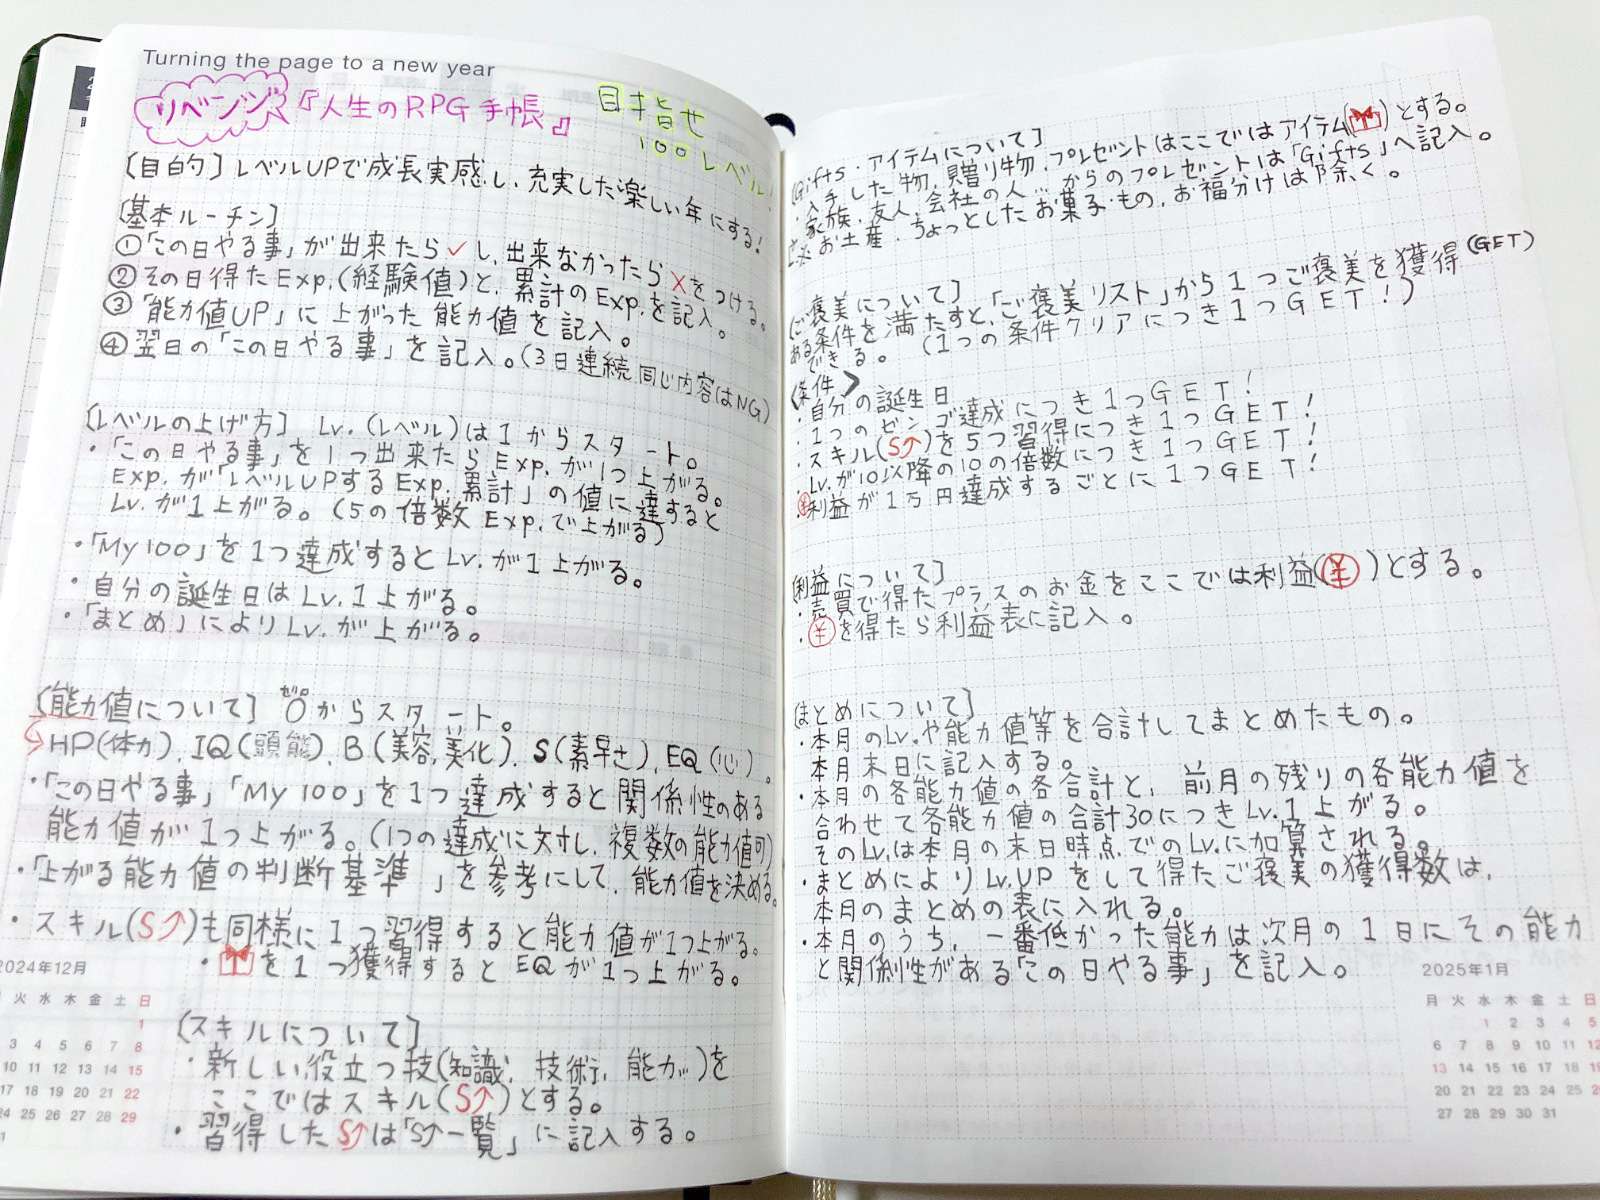 Turning the page to a new year
リベンジ『人生のRPG手帳』
目指せ
100レベル!
[目的] レベルUPで成長実感し、充実した楽しい年にする!
[基本ルーチン]
①「この日やる事」が出来たら✓し、出来なかったら×をつける。
②その日得たExp.(経験値)と、累計のExp.を記入。
③「能力値UP」に上がった能力値を記入。
④翌日の「この日やる事」を記入。(3日連続同じ内容はNG)
[レベルの上げ方] Lv.(レベル)は1からスタート。
・「この日やる事」を1つ出来たらExp.が1つ上がる。
Exp.が「レベルUPするExp.累計」の値に達すると
Lv.が1上がる。(5の倍数Exp.で上がる)
・「My100」を1つ達成するとLv.が1上がる。
・自分の誕生日はLv.1上がる。
・「まとめ」によりLv.が上がる。
[能力値について] 0からスタート。
ゼロ
HP(体力)、IQ(頭能)、B(美容,美化)、S(素早さ)、EQ(心)。
・「この日やる事」「My100」を1つ達成すると関係性のある
能力値が1つ上がる。(1つの達成に対し、複数の能力値可)
・「上がる能力値の判断基準」を参考にして、能力値を決める。
・スキル(S↑)も同様に1つ習得すると能力値が1つ上がる。
・🎁を1つ獲得するとEQが1つ上がる。
[スキルについて]
・新しい役立つ技(知識、技術、能力…)を
ここではスキル(S↑)とする。
・習得したS↑は「S↑一覧」に記入する。
2024年12月
火 水 木 金 土 日
1
3 4 5 6 7 8
10 11 12 13 14 15
17 18 19 20 21 22
24 25 26 27 28 29
[Gifts・アイテムについて]
・入手した物、贈り物、プレゼントはここではアイテム(🎁)とする。
・家族、友人、会社の人…からのプレゼントは「Gifts」へ記入。
※お土産、ちょっとしたお菓子・もの、お福分けは除く。
[ご褒美について]
ある条件を満たすと、「ご褒美リスト」から1つご褒美を獲得(GET)
できる。(1つの条件クリアにつき1つGET!)
<条件>
・自分の誕生日
・1つのゼンゴ達成につき1つGET!
・スキル(S↑)を5つ習得につき1つGET!
・Lv.が10以降の10の倍数につき1つGET!
・¥利益が1万円達成するごとに1つGET!
[利益について]
・売買で得たプラスのお金をここでは利益(¥)とする。
・¥を得たら利益表に記入。
[まとめについて]
・本月のLv.や能力値等を合計してまとめたもの。
本月末日に記入する。
・本月の各能力値の各合計と、前月の残りの各能力値を
合わせて各能力値の合計30につきLv.1上がる。
そのLv.は本月の末日時点でのLv.に加算される。
・まとめによりLv.UPをして得たご褒美の獲得数は、
本月のまとめの表に入れる。
・本月のうち、一番低かった能力は次月の1日にその能力
と関係性がある「この日やる事」を記入。
2025年1月
月 火 水 木 金 土 日
1 2 3 4 5
6 7 8 9 10 11 12
13 14 15 16 17 18 19
20 21 22 23 24 25
27 28 29 30 31